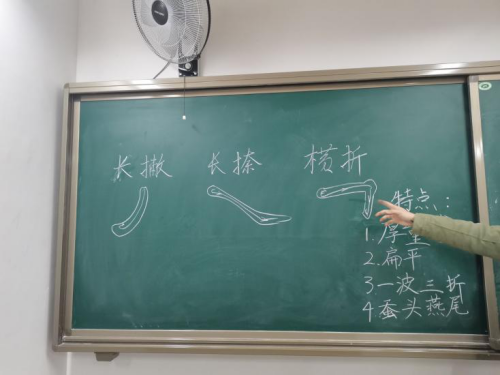 长撇 长捺 横折
特点：
1.厚重
2.扁平
3一波三折
4蚕头燕尾